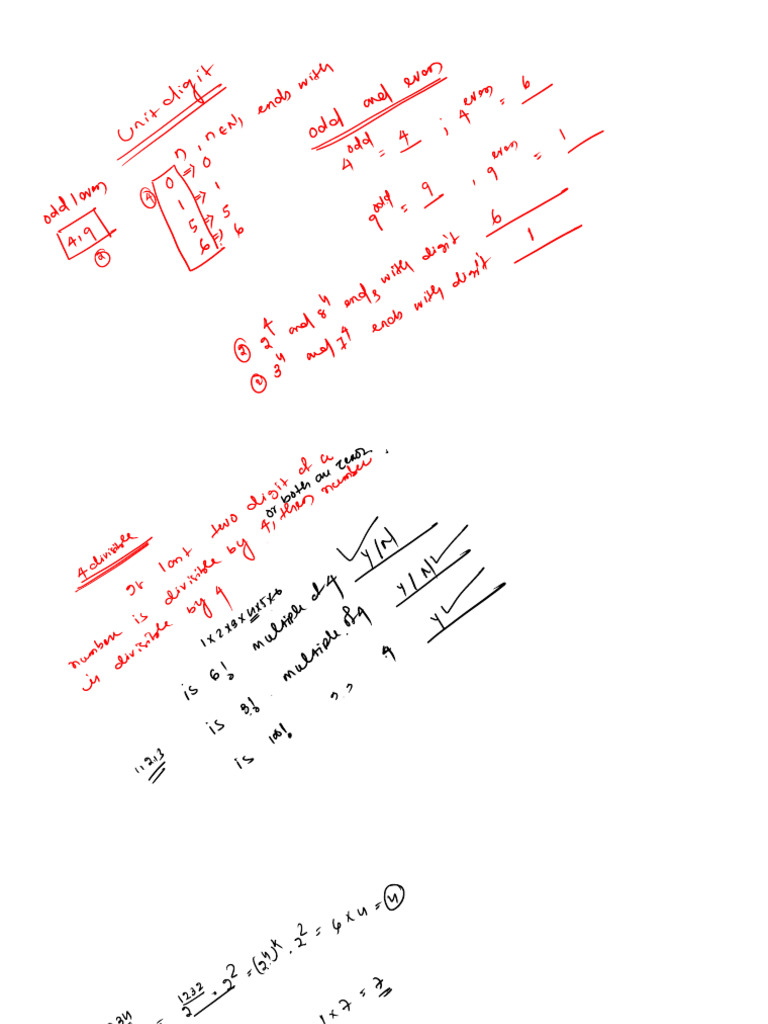 Unit digit
n, n∈N, ends with
0 ⇒ 0
④ 1 ⇒ 1
5 ⇒ 5
6 ⇒ 6
odd / even
4, 9
②
odd and even
4^odd = 4 ; 4^even = 6
9^odd = 9 , 9^even = 1
② 2^4 and 8^4 ends with digit 6
② 3^4 and 7^4 ends with digit 1
4 divisible
If last two digit of a
or both are zeros
number is divisible by 4, then number
is divisible by 4
1×2×3×4×5×6
is 6! multiple of 4 Y/N
is 3! multiple of 4 Y/N
1,2,3
is 100! ,, 4 Y
= 2^1232 · 2^2 = (2^4)^k · 2^2 = 6 × 4 = 4
1 × 7 = 7